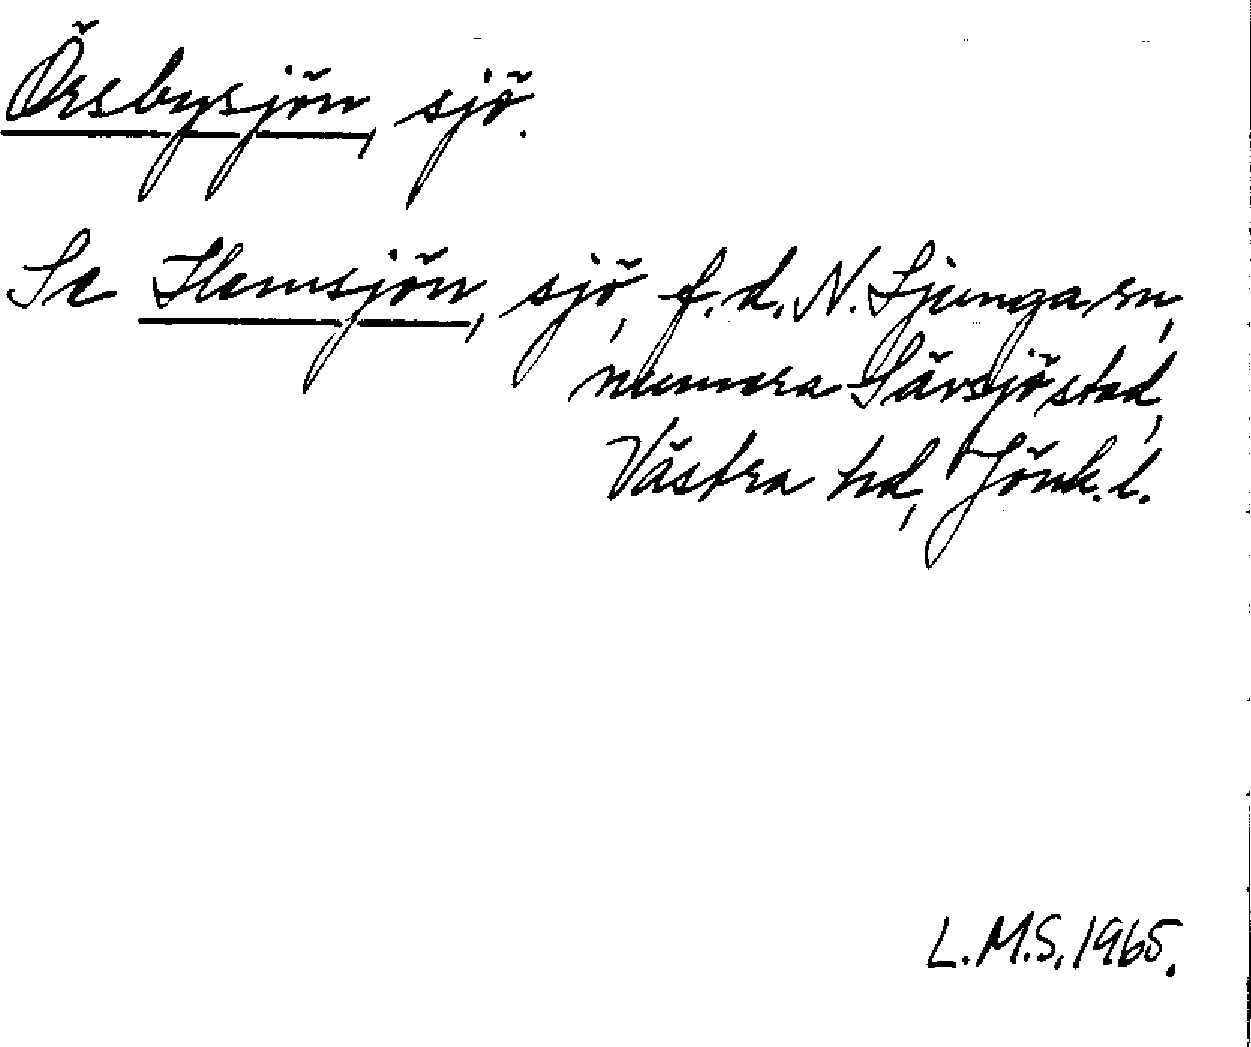 Örsbysjön, sjö.
Se Hemsjön, sjö, f.d. N. Ljunga sn,
numera Sävsjö stad,
Västra hd, Jönk. l.
L.M.S. 1965.